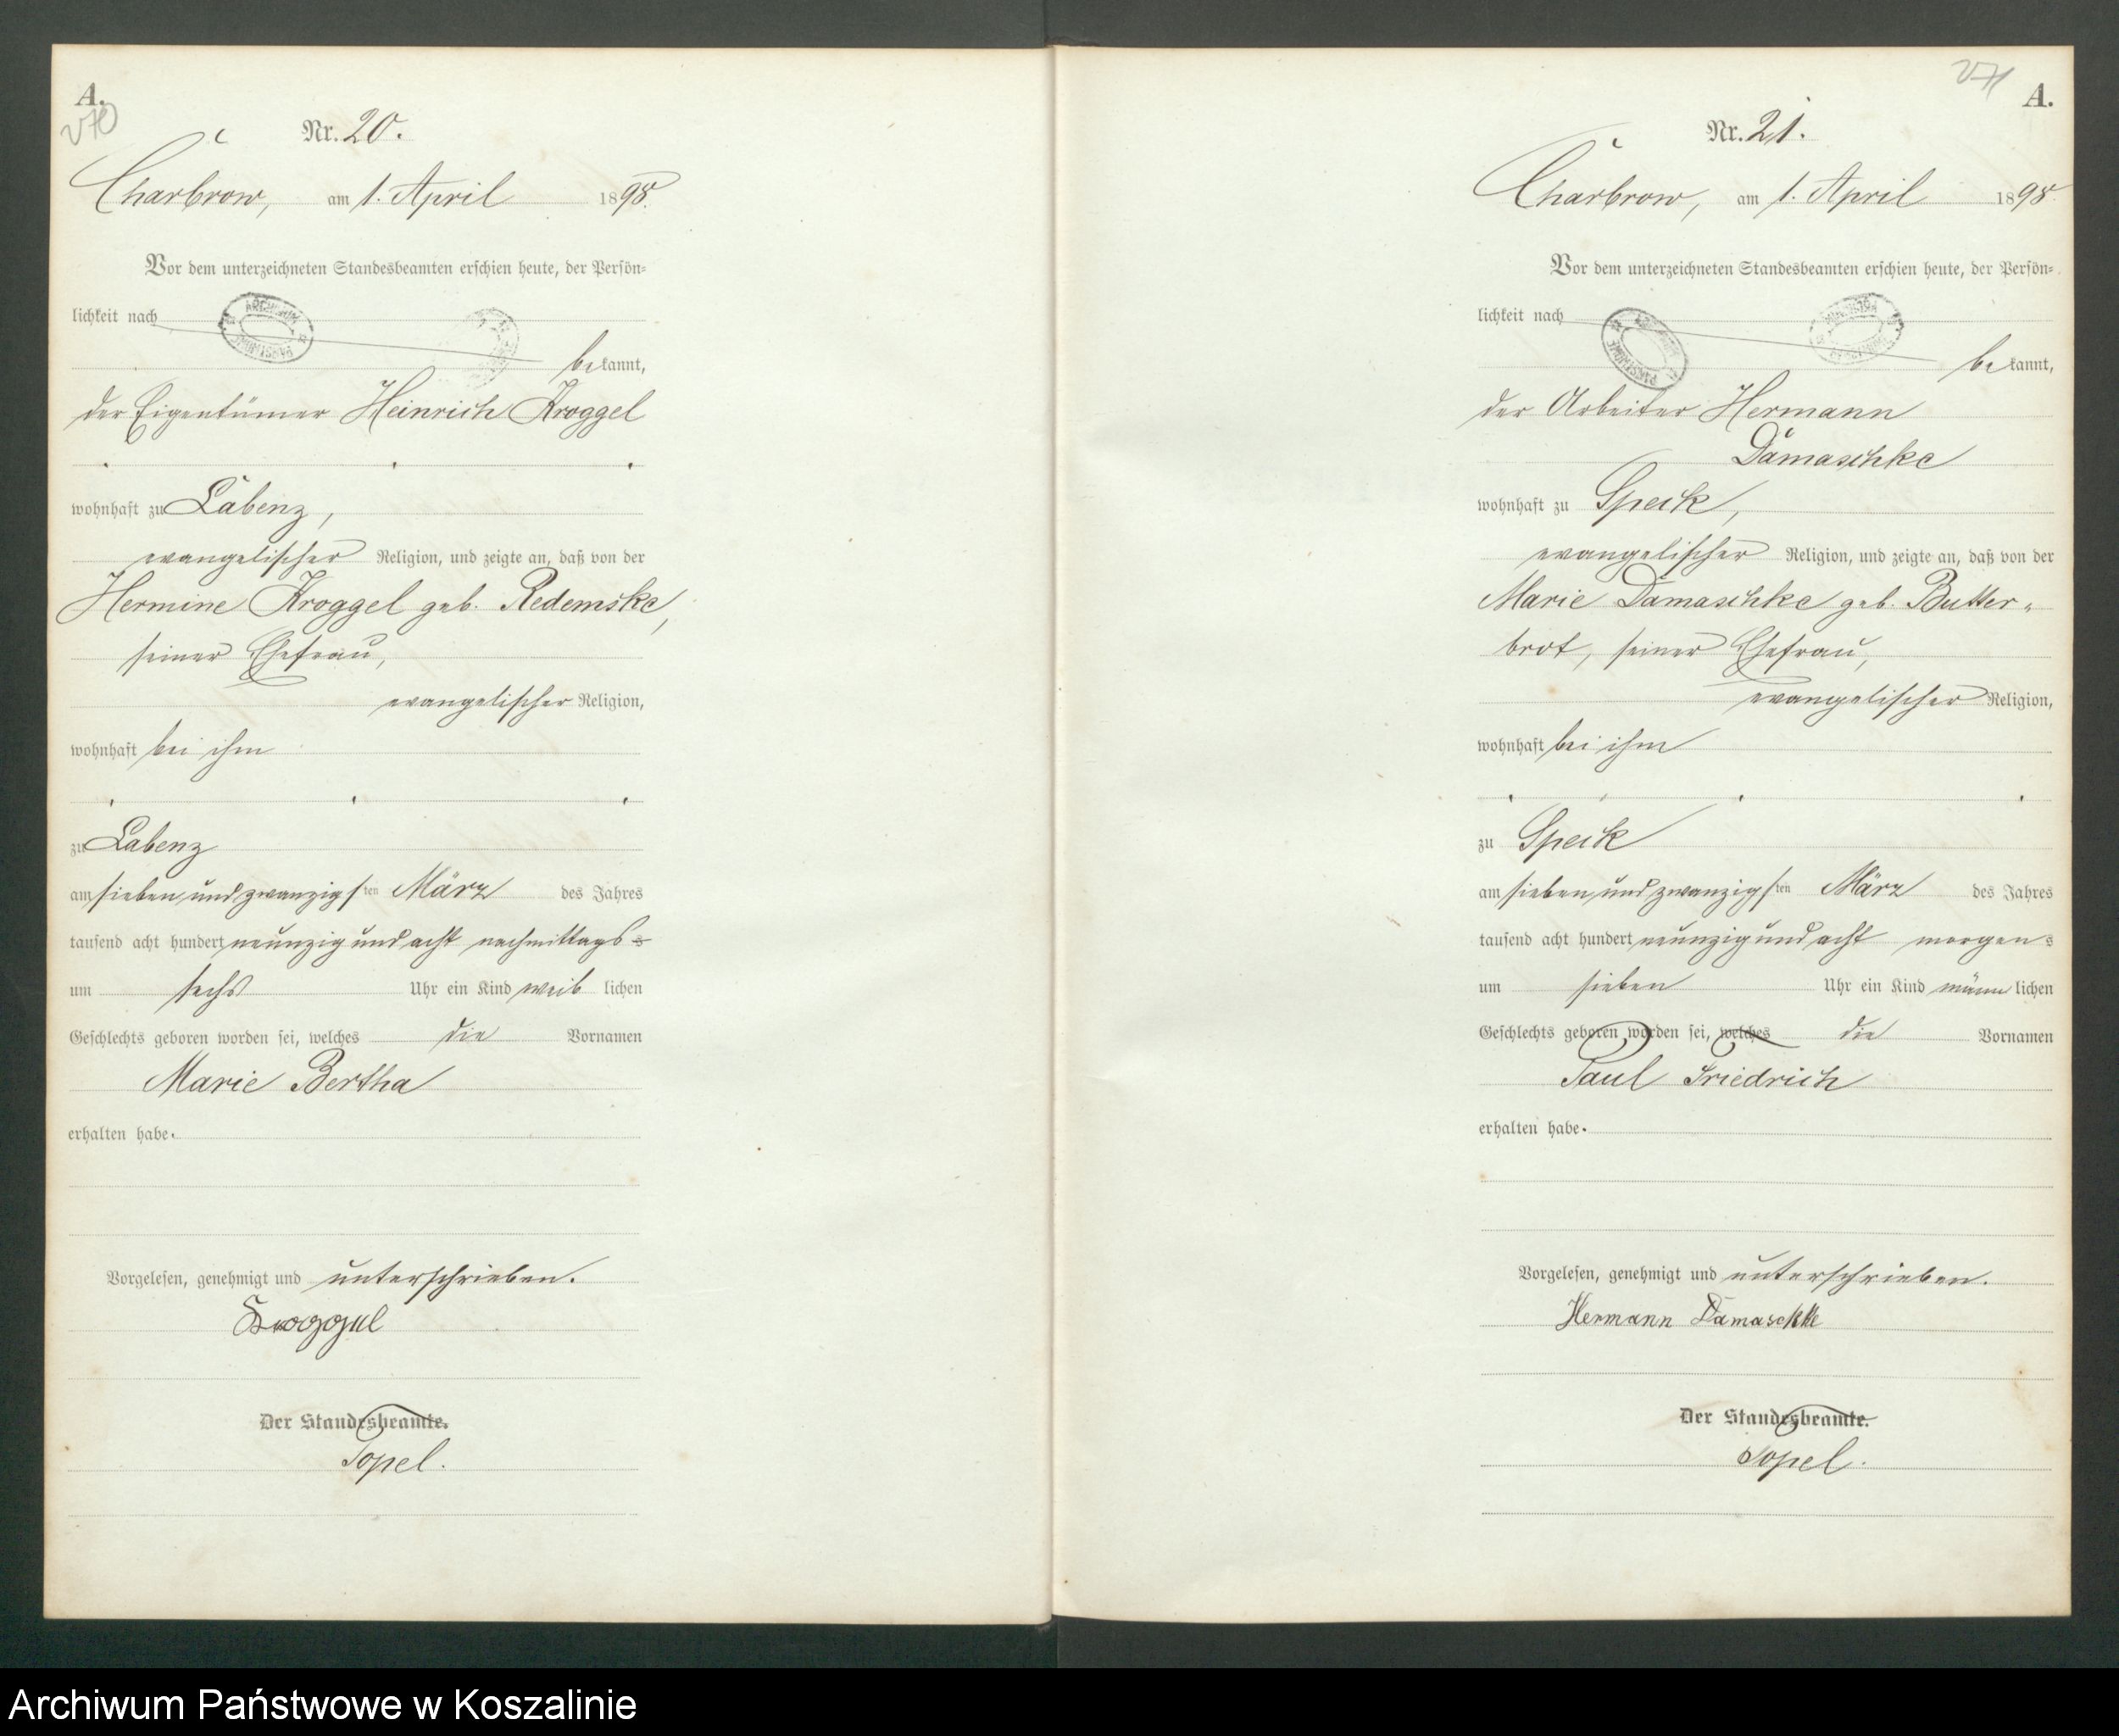 A.
270
Nr. 20.
Charbrow, am 1. April 1898.
Vor dem unterzeichneten Standesbeamten erschien heute, der Persön=
lichkeit nach
bekannt,
der Eigentümer Heinrich Kroggel
wohnhaft zu Labenz,
evangelischer Religion, und zeigte an, daß von der
Hermine Kroggel geb. Redemske,
seiner Ehefrau,
evangelischer Religion,
wohnhaft bei ihm
zu Labenz
am sieben und zwanzigsten März des Jahres
tausend acht hundert neunzig und acht nachmittags
um sechs Uhr ein Kind weiblichen
Geschlechts geboren worden sei, welches die Vornamen
Marie Bertha
erhalten habe.
Vorgelesen, genehmigt und unterschrieben.
Kroggel
Der Standesbeamte.
Topel.
271
A.
Nr. 21.
Charbrow, am 1. April 1898
Vor dem unterzeichneten Standesbeamten erschien heute, der Persön=
lichkeit nach
bekannt,
der Arbeiter Hermann
Damaschke
wohnhaft zu Speck,
evangelischer Religion, und zeigte an, daß von der
Marie Damaschke geb. Butter-
brot, seiner Ehefrau,
evangelischer Religion,
wohnhaft bei ihm
zu Speck
am sieben und zwanzigsten März des Jahres
tausend acht hundert neunzig und acht morgens
um sieben Uhr ein Kind männlichen
Geschlechts geboren worden sei, welches die Vornamen
Paul Friedrich
erhalten habe.
Vorgelesen, genehmigt und unterschrieben.
Hermann Damaschke
Der Standesbeamte.
Topel.
Archiwum Państwowe w Koszalinie